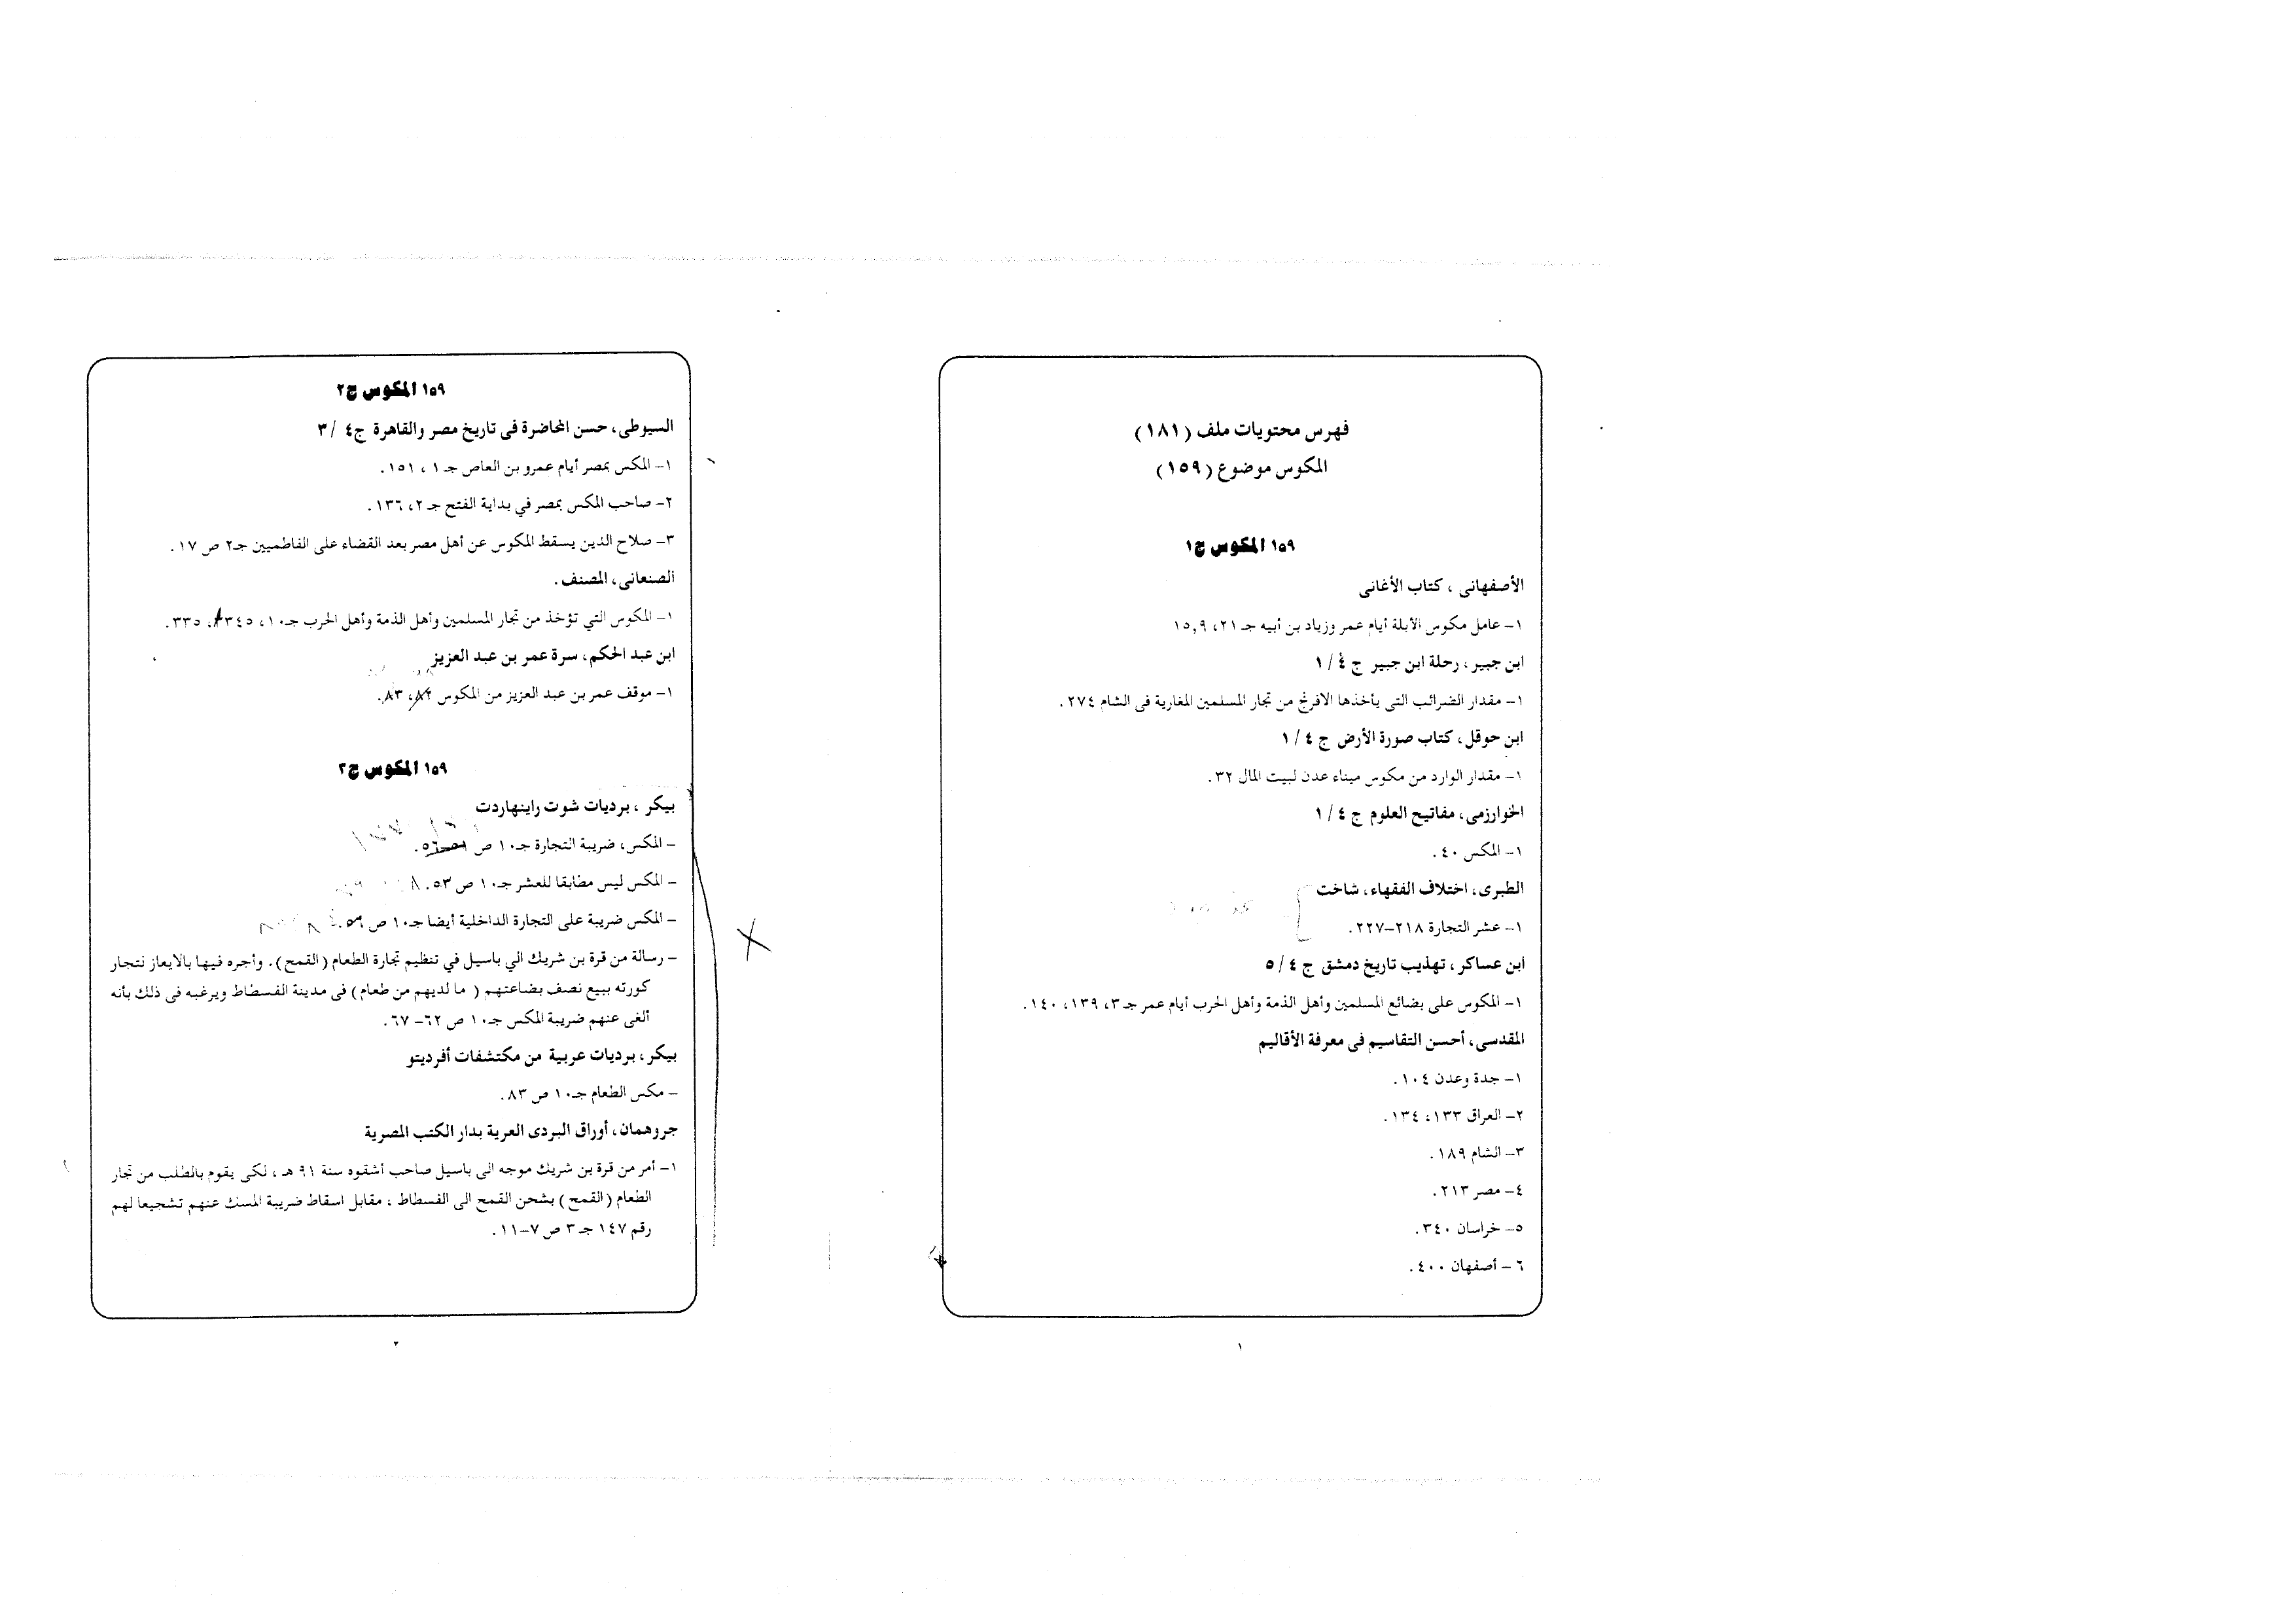 فهرس محتويات ملف (١٨١)
المكوس موضوع (١٥٩)
١٥٩ المكوس ج١
الأصفهانى ، كتاب الأغانى
١- عامل مكوس الأبلة أيام عمر وزياد بن أبيه جـ ٢١، ١٥,٩
ابن جبير ، رحلة ابن جبير ج ٤ / ١
١- مقدار الضرائب التى يأخذها الافرنج من تجار المسلمين المغاربة فى الشام ٢٧٤ .
ابن حوقل، كتاب صورة الأرض ج ٤ / ١
١- مقدار الوارد من مكوس ميناء عدن لبيت المال ٣٢.
الخوارزمى، مفاتيح العلوم ج ٤ / ١
١- المكس ٤٠ .
الطبرى، اختلاف الفقهاء، شاخت
١- عشر التجارة ٢١٨-٢٢٧.
ابن عساكر ، تهذيب تاريخ دمشق ج ٤ / ٥
١- المكوس على بضائع المسلمين وأهل الذمة وأهل الحرب أيام عمر جـ ٣، ١٣٩، ١٤٠ .
المقدسى، أحسن التقاسيم فى معرفة الأقاليم
١- جدة وعدن ١٠٤ .
٢- العراق ١٣٣، ١٣٤ .
٣- الشام ١٨٩ .
٤- مصر ٢١٣.
٥- خراسان ٣٤٠ .
٦ - أصفهان ٤٠٠ .
١
١٥٩ المكوس ج٢
السيوطى، حسن المحاضرة فى تاريخ مصر والقاهرة ج٤ / ٣
١- المكس بمصر أيام عمرو بن العاص جـ ١ ، ١٥١.
٢- صاحب المكس بمصر في بداية الفتح جـ ٢، ١٣٦ .
٣- صلاح الدين يسقط المكوس عن أهل مصر بعد القضاء على الفاطميين جـ٢ ص ١٧ .
الصنعانى، المصنف .
١- المكوس التي تؤخذ من تجار المسلمين وأهل الذمة وأهل الحرب جـ١٠، ٣٤٥، ٣٣٥.
ابن عبد الحكم، سرة عمر بن عبد العزيز
١- موقف عمر بن عبد العزيز من المكوس ٨٢، ٨٣.
١٥٩ المكوس ج٣
بيكر ، برديات شوت راينهاردت
- المكس، ضريبة التجارة جـ١٠ ص ٥١-٥٦ .
- المكس ليس مطابقا للعشر جـ١٠ ص ٥٣.
- المكس ضريبة على التجارة الداخلية أيضا جـ١٠ ص ٥٦.
- رسالة من قرة بن شريك الي باسيل في تنظيم تجارة الطعام (القمح). وأجره فيها بالايعاز لتجار
كورته ببيع نصف بضاعتهم ( ما لديهم من طعام) فى مدينة الفسطاط ويرغبه فى ذلك بأنه
ألغى عنهم ضريبة المكس جـ١٠ ص ٦٢- ٦٧ .
بيكر ، برديات عربية من مكتشفات أفرديتو
- مكس الطعام جـ١٠ ص ٨٣.
جروهمان، أوراق البردى العرية بدار الكتب المصرية
١- أمر من قرة بن شريك موجه الى باسيل صاحب أشقوه سنة ٩١ هـ ، لكى يقوم بالطلب من تجار
الطعام (القمح) بشحن القمح الى الفسطاط ، مقابل اسقاط ضريبة المسك عنهم تشجيعا لهم
رقم ١٤٧ جـ ٣ ص ٧-١١ .
٢